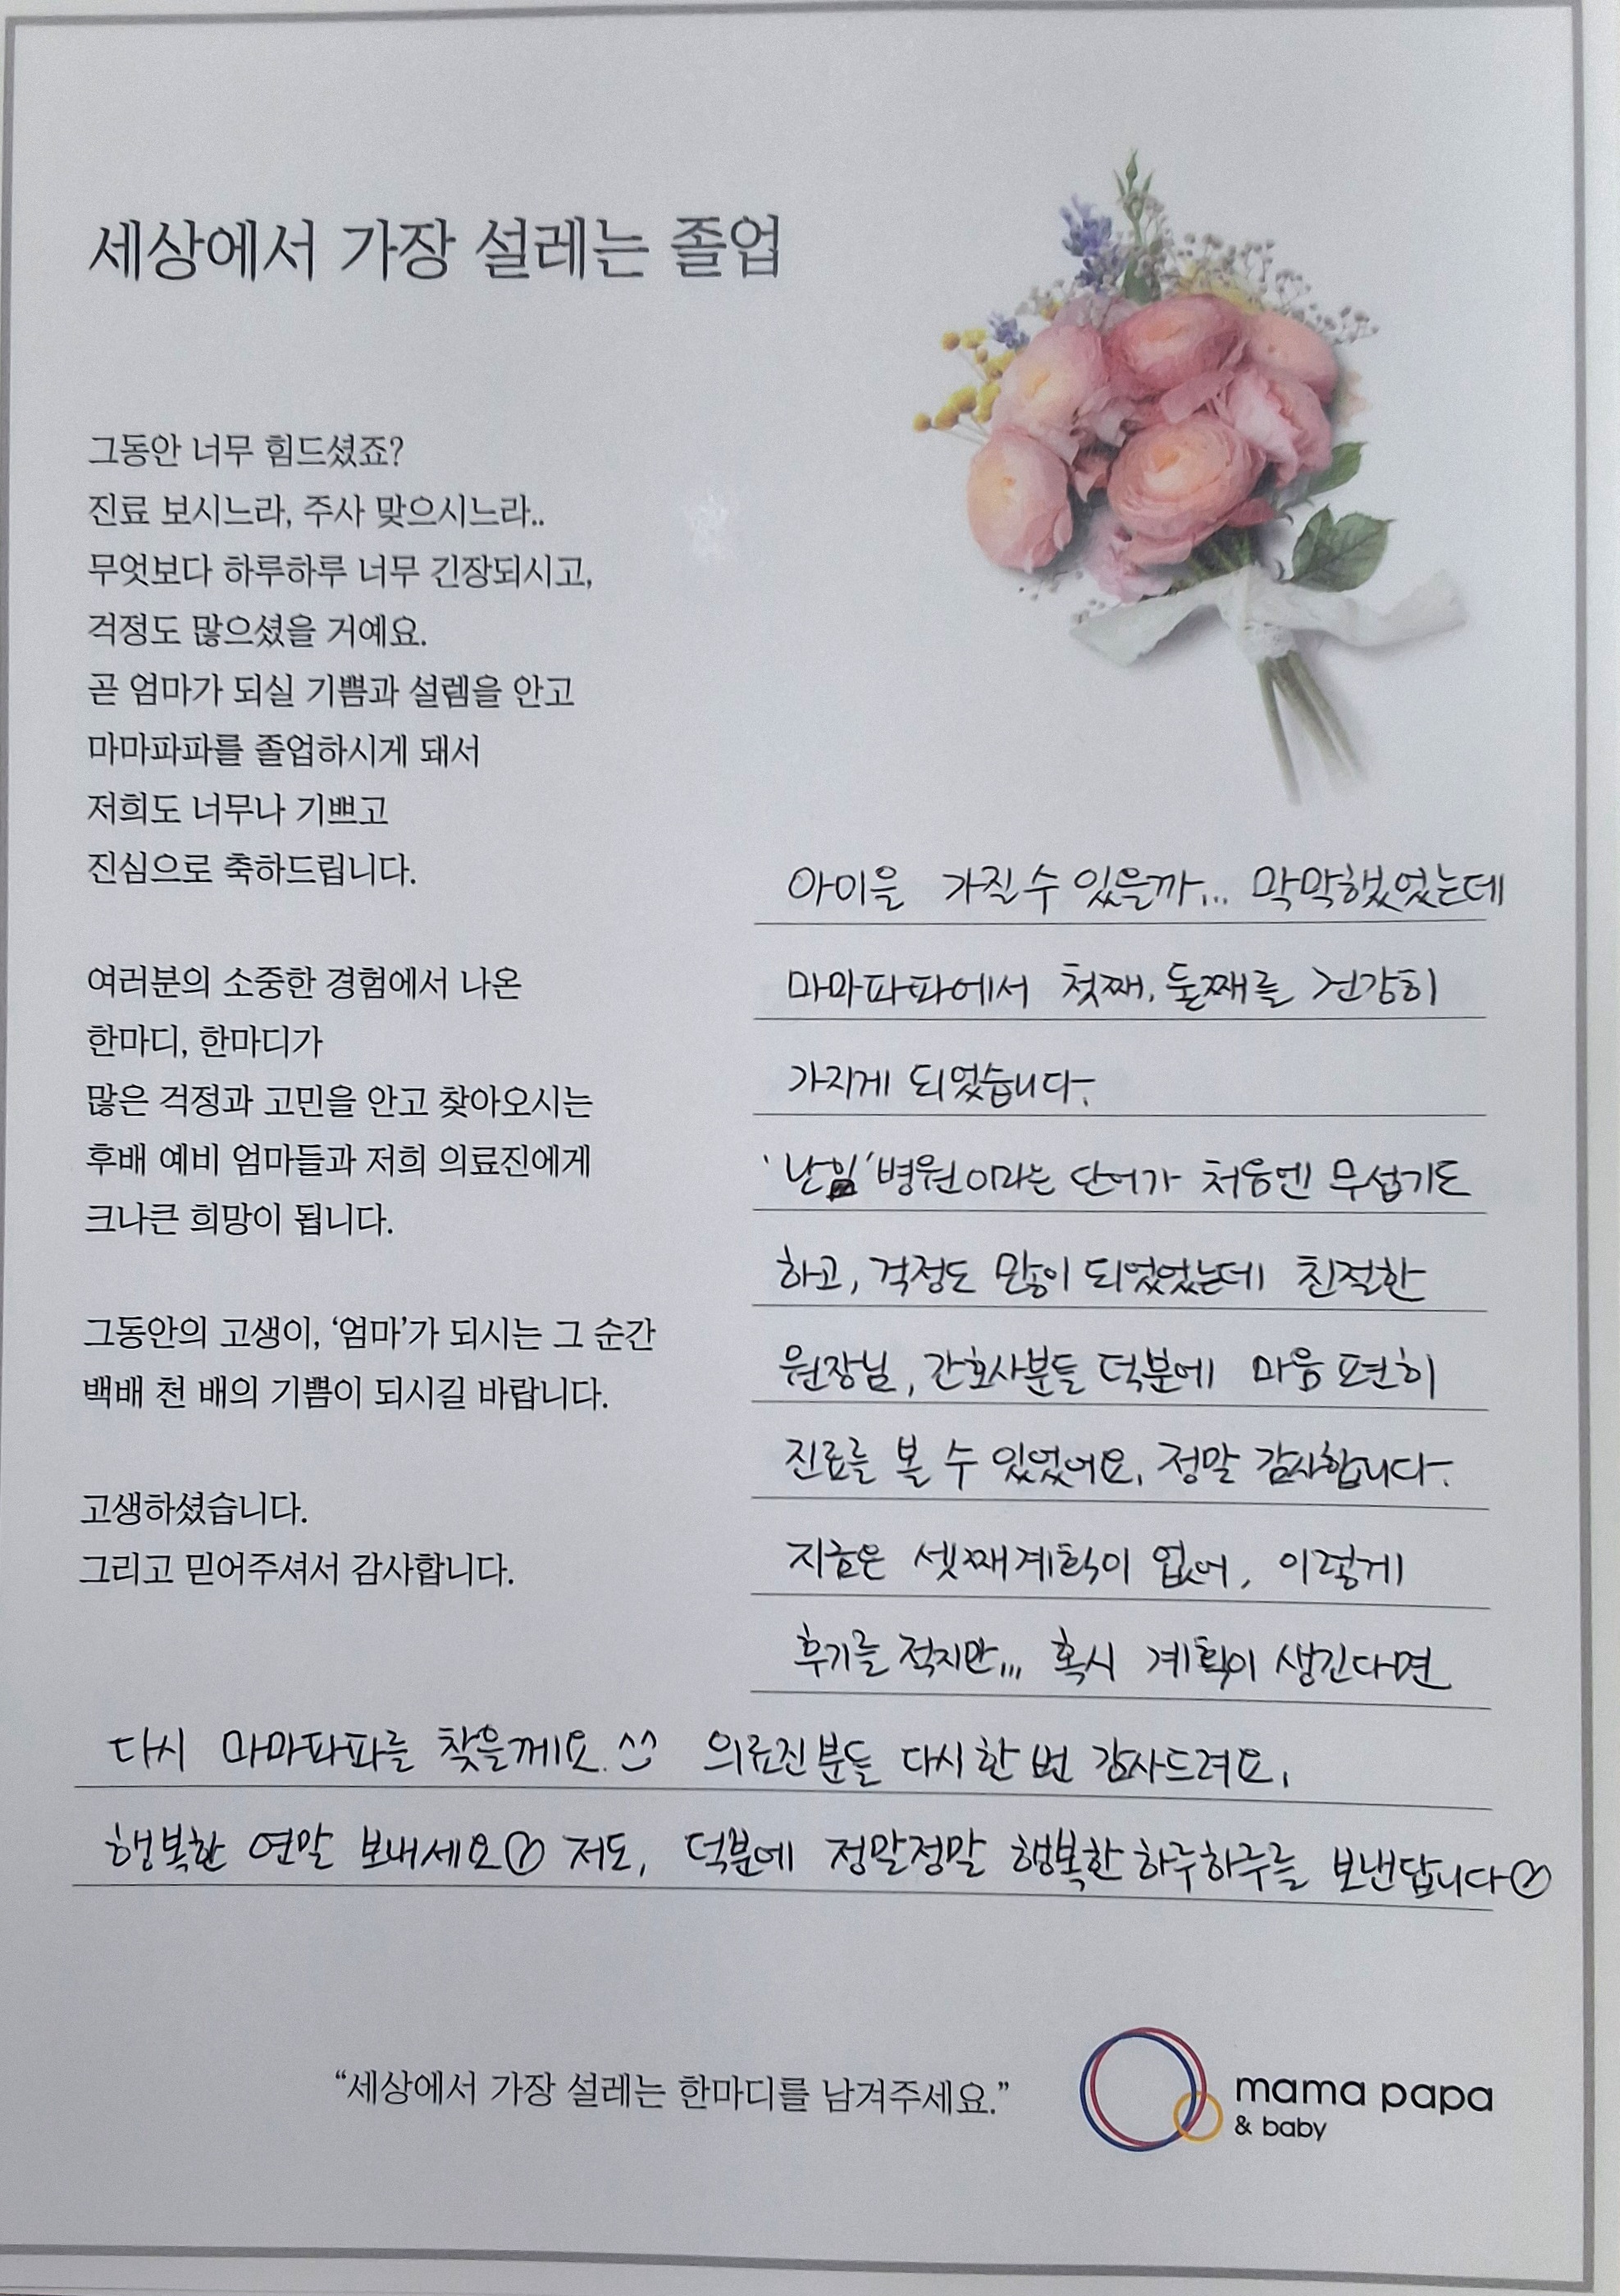 세상에서 가장 설레는 졸업
그동안 너무 힘드셨죠?
진료 보시느라, 주사 맞으시느라..
무엇보다 하루하루 너무 긴장되시고,
걱정도 많으셨을 거예요.
곧 엄마가 되실 기쁨과 설렘을 안고
마마파파를 졸업하시게 돼서
저희도 너무나 기쁘고
진심으로 축하드립니다.
여러분의 소중한 경험에서 나온
한마디, 한마디가
많은 걱정과 고민을 안고 찾아오시는
후배 예비 엄마들과 저희 의료진에게
크나큰 희망이 됩니다.
그동안의 고생이, ‘엄마’가 되시는 그 순간
백배 천 배의 기쁨이 되시길 바랍니다.
고생하셨습니다.
그리고 믿어주셔서 감사합니다.
아이을 가질 수 있을까... 막막했었는데
마마파파에서 첫째, 둘째를 건강히
가지게 되었습니다.
'난임' 병원이라는 단어가 처음엔 무섭기도
하고, 걱정도 많이 되었었는데 친절한
원장님, 간호사분들 덕분에 마음 편히
진료를 볼 수 있었어요. 정말 감사합니다.
지금은 셋째계획이 없어, 이렇게
후기를 적지만... 혹시 계획이 생긴다면
다시 마마파파를 찾을께요. ^^ 의료진분들 다시 한 번 감사드려요.
행복한 연말 보내세요♡ 저도, 덕분에 정말정말 행복한 하루하루를 보낸답니다♡
“세상에서 가장 설레는 한마디를 남겨주세요.”
mama papa
& baby